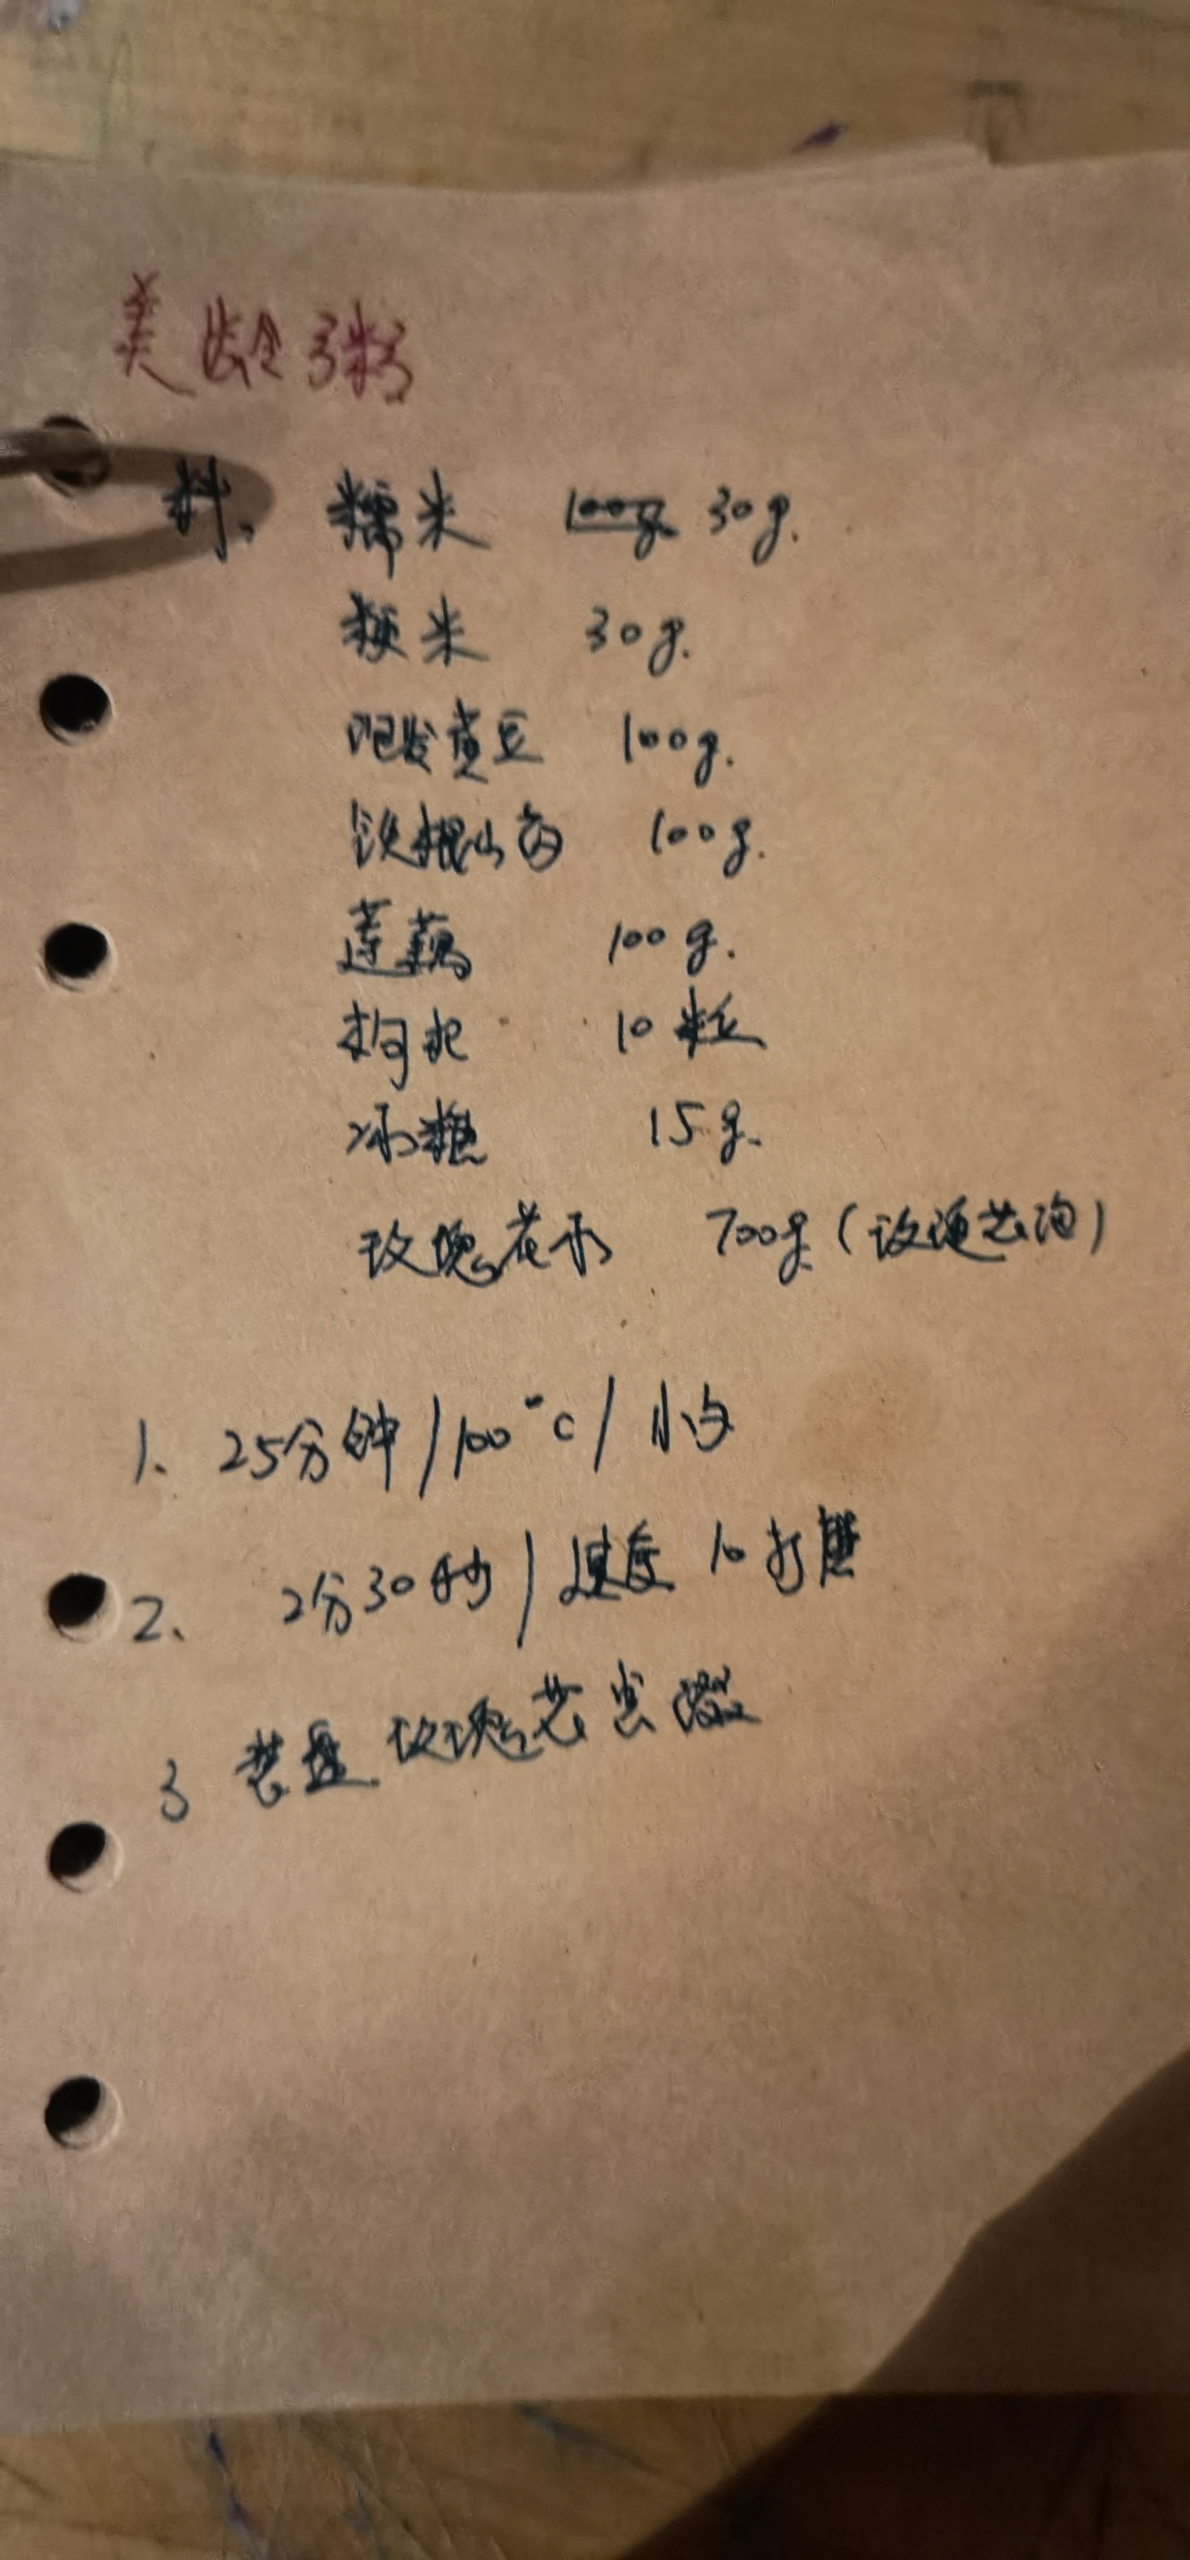 美龄粥
料、 糯米 100g 30g.
粳米 30g.
泡发黄豆 100g.
铁棍山药 100g.
莲藕 100g.
枸杞 10粒
冰糖 15g.
玫瑰花水 700g (玫瑰花泡)
1、25分钟/100°C/小勺
2、 2分30秒/速度10打磨
3 装盘 玫瑰花点缀